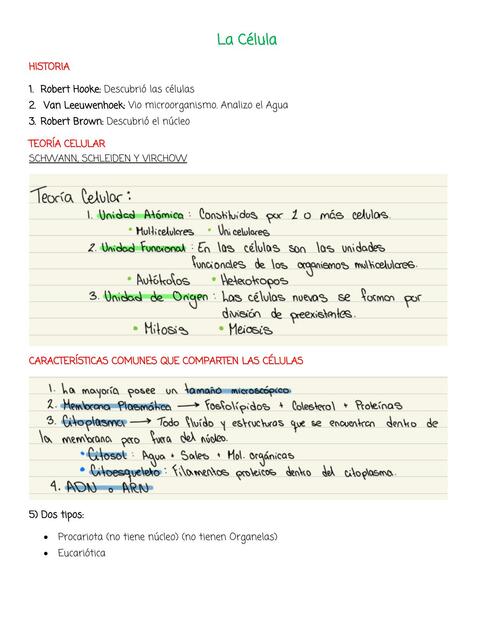 La Célula
HISTORIA
1. Robert Hooke: Descubrió las células
2. Van Leeuwenhoek: Vio microorganismo. Analizo el Agua
3. Robert Brown: Descubrió el núcleo
TEORÍA CELULAR
SCHWANN, SCHLEIDEN Y VIRCHOW
Teoría Celular:
1. Unidad Atómica: Constituidos por 1 o más celulas.
• Multicelulares • Unicelulares
2. Unidad Funcional: En las células son las unidades
funcionales de los organismos multicelulares.
• Autótofos • Heterotopos
3. Unidad de Origen: Las células nuevas se forman por
división de preexistentes.
• Mitosis • Meiosis
CARACTERÍSTICAS COMUNES QUE COMPARTEN LAS CÉLULAS
1. La mayoría posee un tamaño microscópico
2. Membrana Plasmática → Fosfolípidos + Colesterol + Proteínas
3. Citoplasma → Todo fluido y estructuras que se encuentran dentro de
la membrana pero fuera del núcleo.
• Citosol: Agua + Sales + Mol. orgánicas
• Citoesqueleto: Filamentos proteicos dentro del citoplasma.
4. ADN o ARN
5) Dos tipos:
• Procariota (no tiene núcleo) (no tienen Organelas)
• Eucariótica